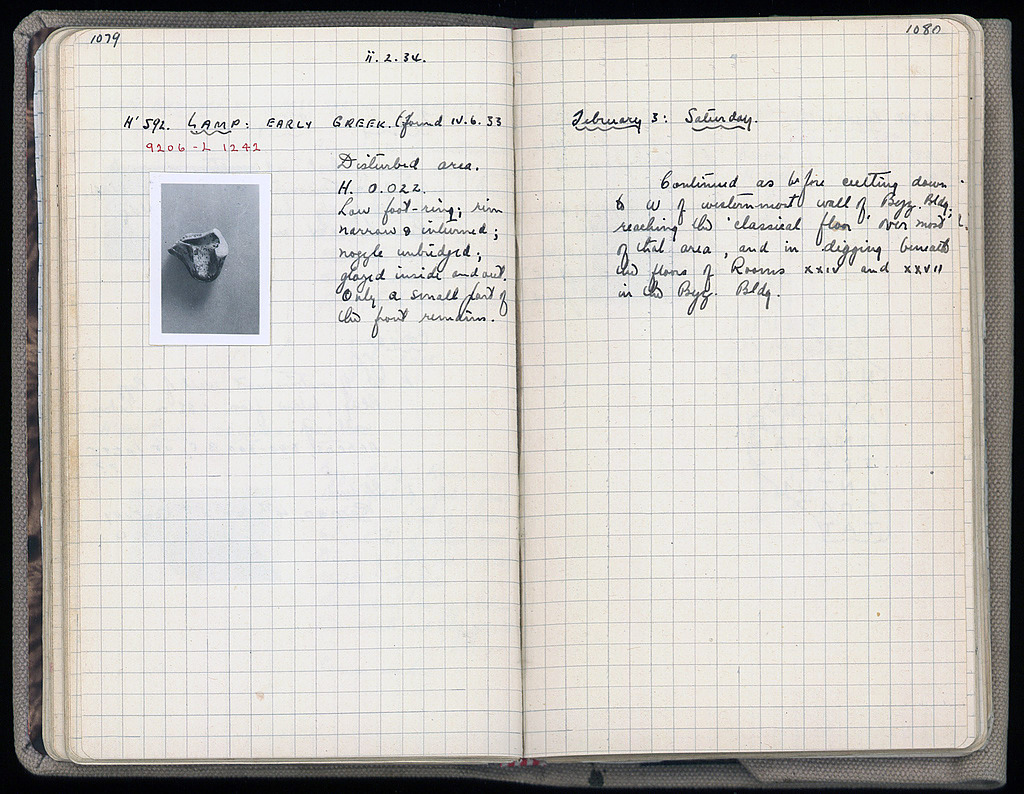 1079
ii. 2. 34.
H' 592. LAMP: EARLY GREEK. (found iv. 6. 33
9206 - L 1242
Disturbed area.
H. 0.022.
Low foot-ring; rim
narrow & inturned;
nozzle unbridged;
glazed inside and out.
Only a small part of
the front remains.
1080
February 3: Saturday.
Continued as before cutting down
to W of westernmost wall of Byz. Bldg;
reaching the 'classical floor' over most
of that area, and in digging beneath
the floors of Rooms xxiv and xxvii
in the Byz. Bldg.